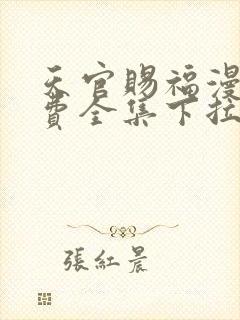 天官賜福漫
費全集下拉
張紅晨